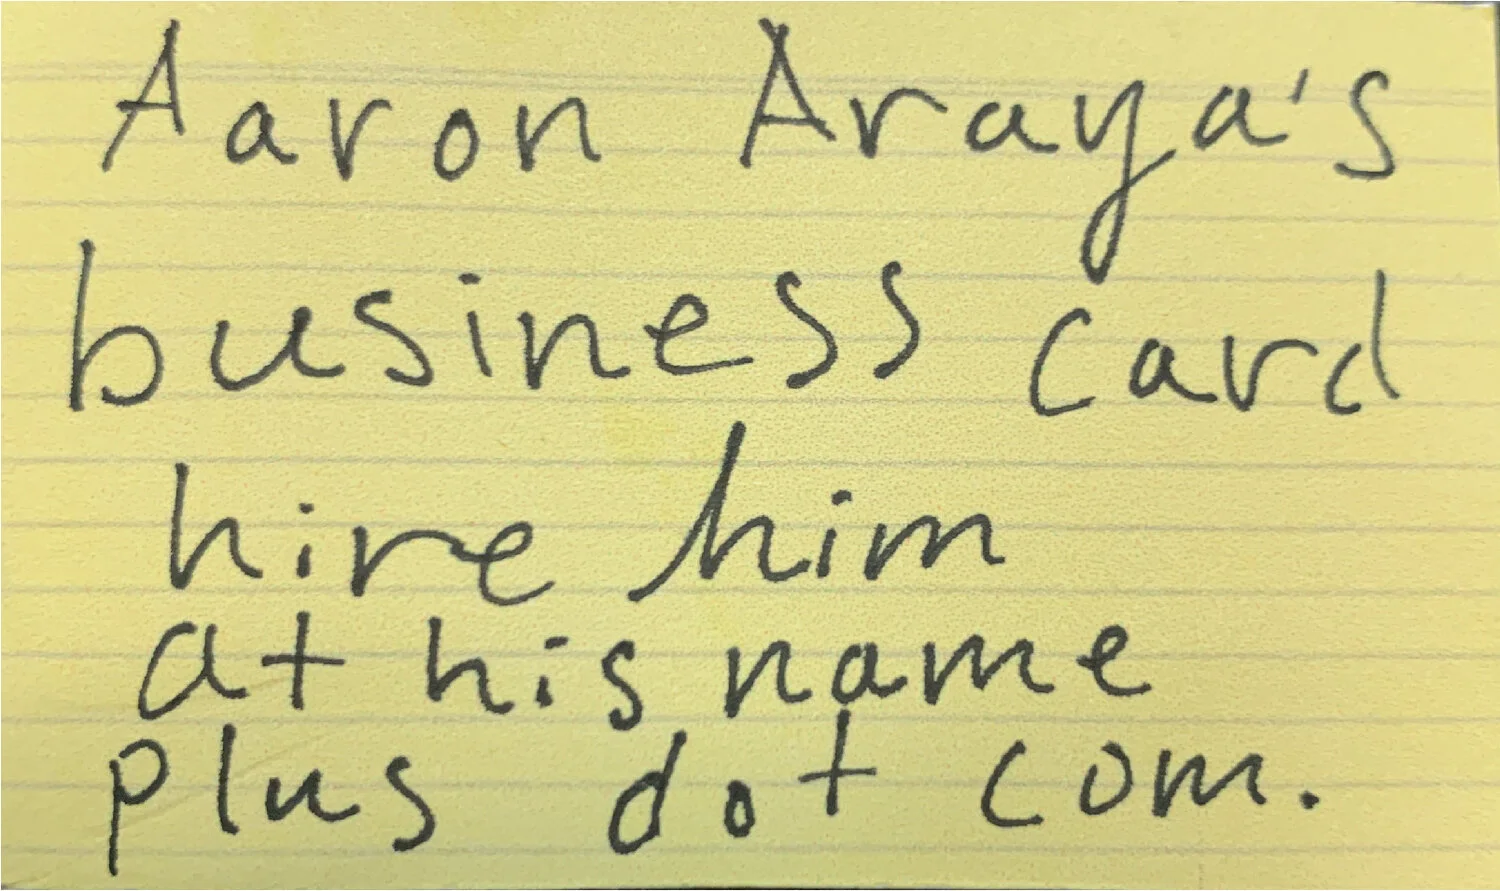 Aaron Araya's
business card
hire him
at his name
plus dot com.